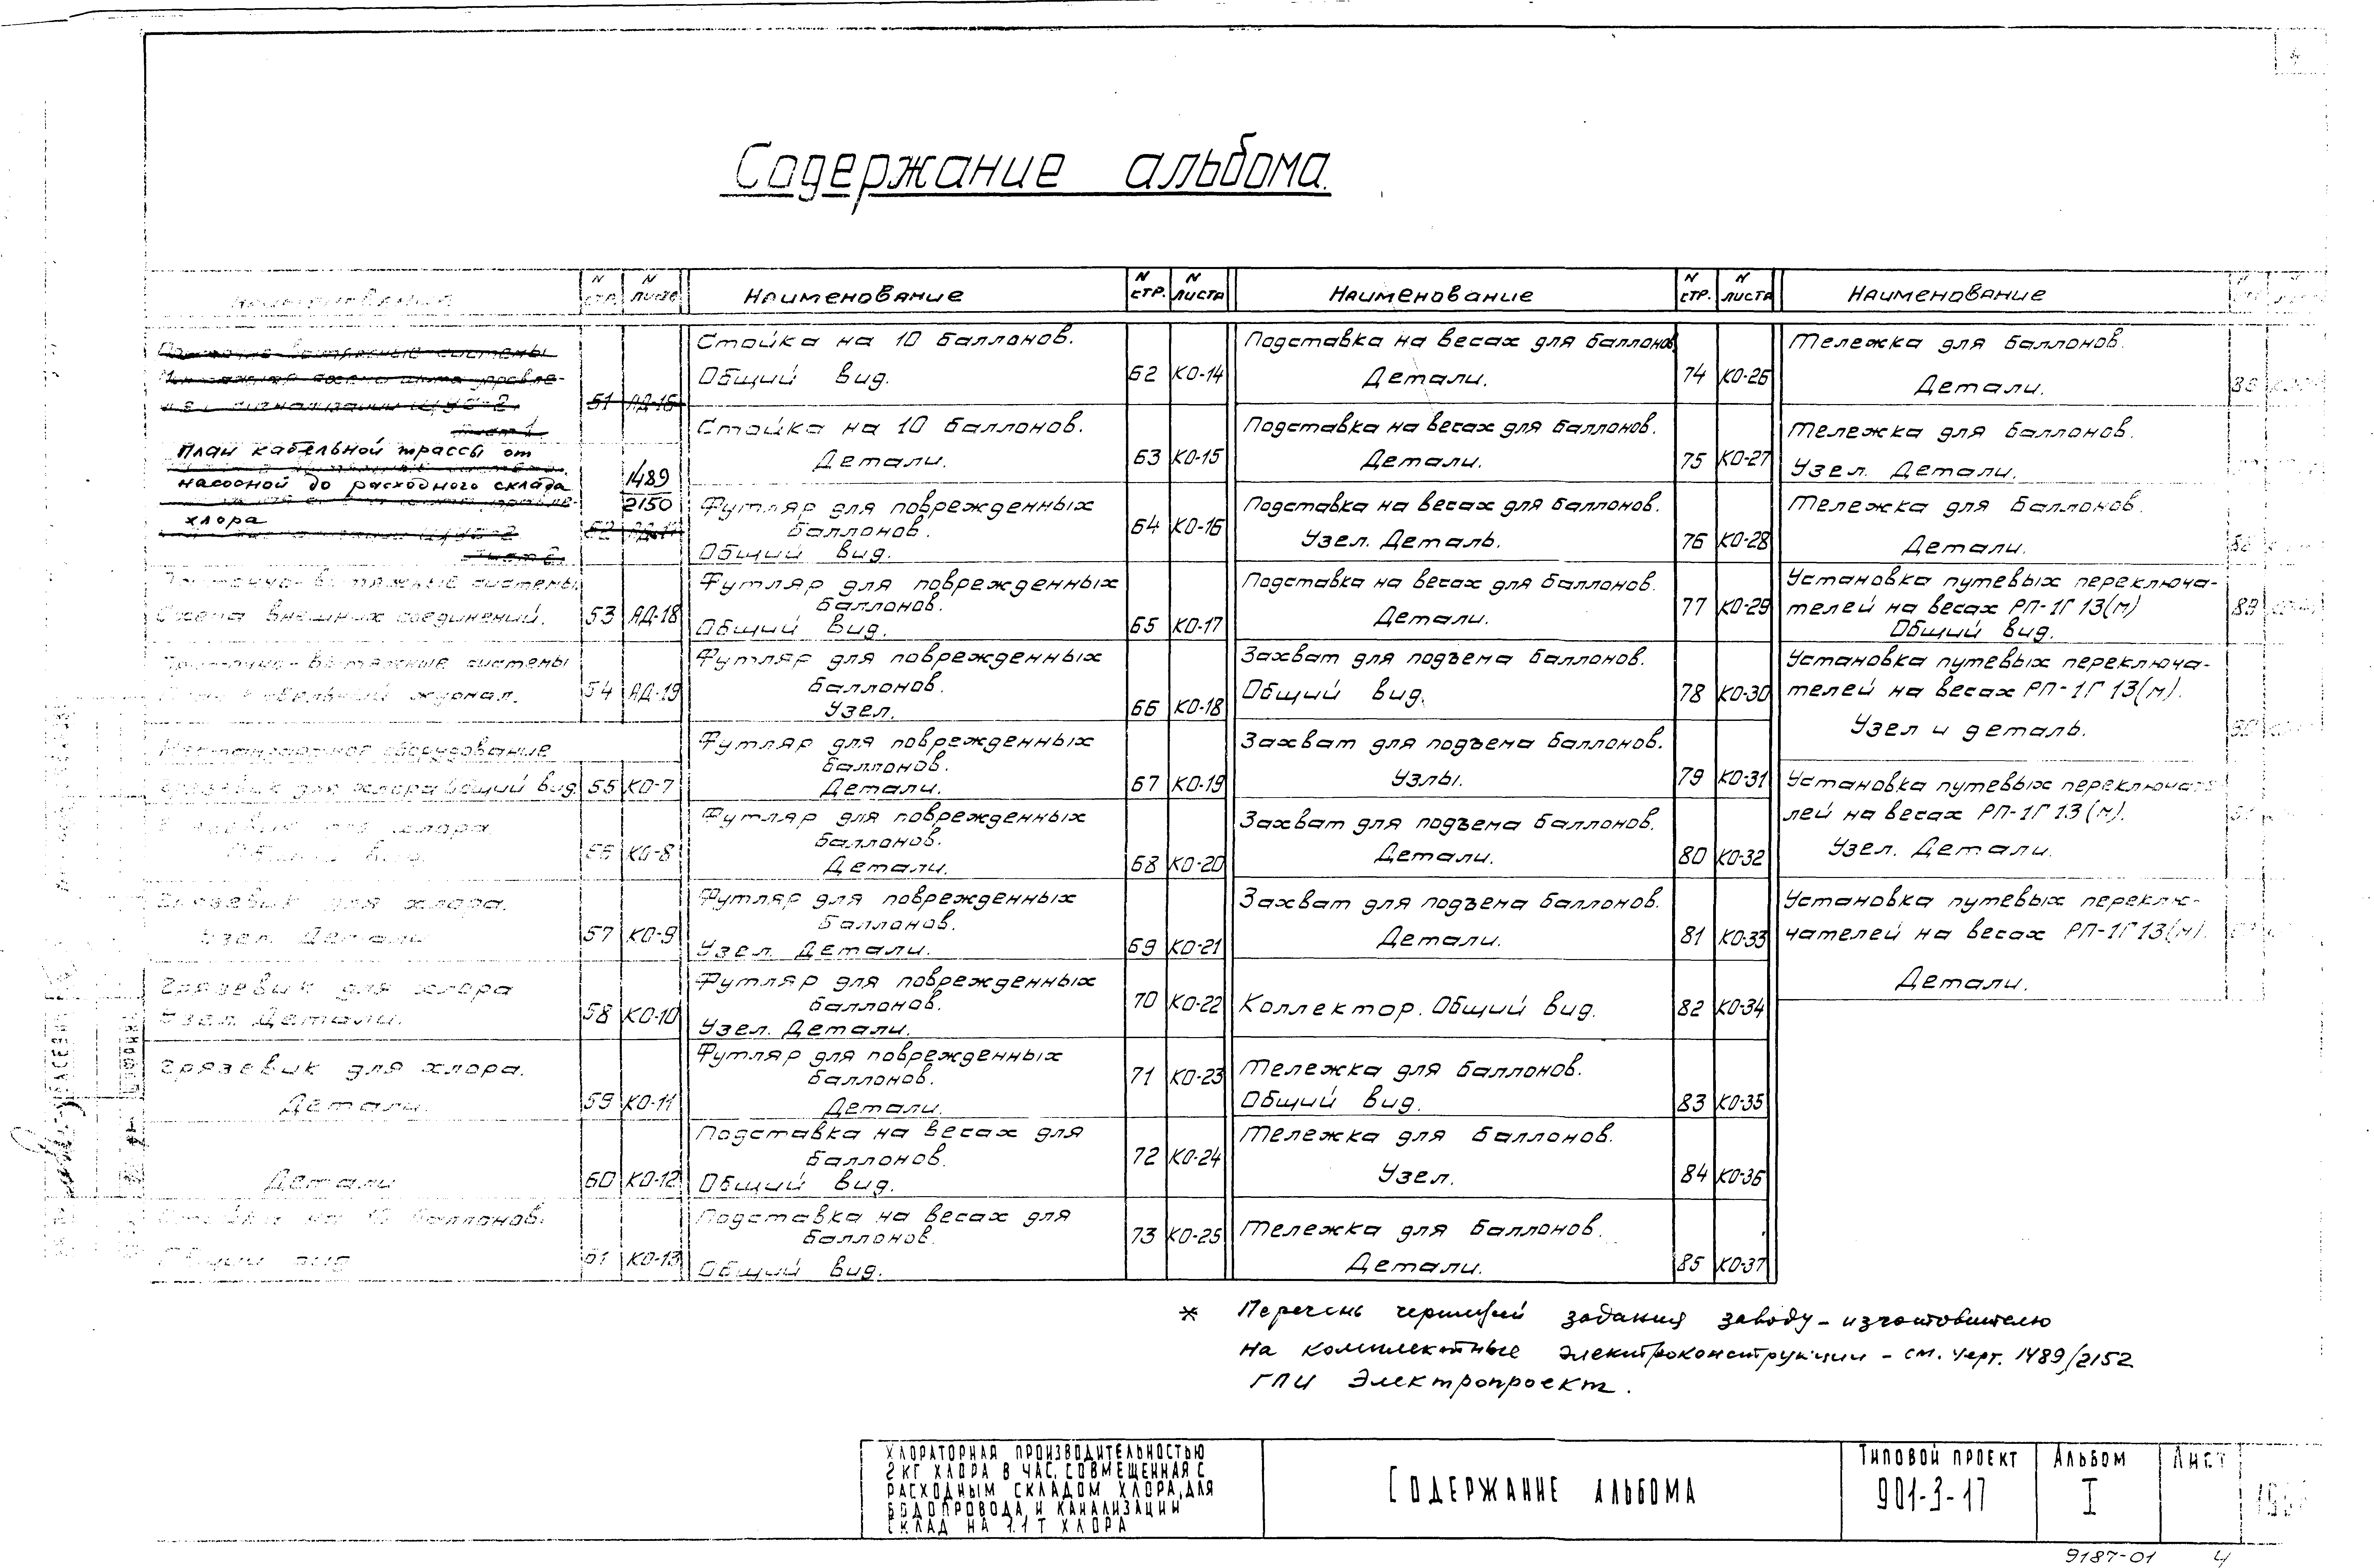 4
Содержание альбома.
Наименование
N стр.
N листа
Наименование
N стр.
N листа
Наименование
N стр.
N листа
Наименование
51 АД-16
Лист 1.
План кабельной трассы от
насосной до расходного склада
хлора
1489
2150
Приточно-вытяжные системы
Схема внешних соединений. 53 АД-18
Приточно-вытяжные системы
журнал. 54 АД-19
Нестандартное оборудование
Грязевик для хлора Общий вид. 55 КО-7
хлора.
Общий вид. 56 КО-8
Грязевик для хлора.
Узел. Детали 57 КО-9
Грязевик для хлора
Узел. Детали. 58 КО-10
Грязевик для хлора.
Детали. 59 КО-11
Детали 60 КО-12
Стойка на 10 баллонов.
Общий вид 61 КО-13
Стойка на 10 баллонов.
Общий вид. 62 КО-14
Стойка на 10 баллонов.
Детали. 63 КО-15
Футляр для поврежденных
баллонов.
Общий вид. 64 КО-16
Футляр для поврежденных
баллонов.
Общий вид. 65 КО-17
Футляр для поврежденных
баллонов.
Узел. 66 КО-18
Футляр для поврежденных
баллонов.
Детали. 67 КО-19
Футляр для поврежденных
баллонов.
Детали. 68 КО-20
Футляр для поврежденных
баллонов.
Узел. Детали. 69 КО-21
Футляр для поврежденных
баллонов. 70 КО-22
Узел. Детали.
Футляр для поврежденных
баллонов. 71 КО-23
Детали.
Подставка на весах для
баллонов. 72 КО-24
Общий вид.
Подставка на весах для
баллонов. 73 КО-25
Общий вид.
Подставка на весах для баллонов
Детали. 74 КО-26
Подставка на весах для баллонов.
Детали. 75 КО-27
Подставка на весах для баллонов.
Узел. Деталь. 76 КО-28
Подставка на весах для баллонов.
Детали. 77 КО-29
Захват для подъема баллонов.
Общий вид. 78 КО-30
Захват для подъема баллонов.
Узлы. 79 КО-31
Захват для подъема баллонов.
Детали. 80 КО-32
Захват для подъема баллонов.
Детали. 81 КО-33
Коллектор. Общий вид. 82 КО-34
Тележка для баллонов.
Общий вид. 83 КО-35
Тележка для баллонов.
Узел. 84 КО-36
Тележка для баллонов.
Детали. 85 КО-37
Тележка для баллонов.
Детали.
Тележка для баллонов.
Узел. Детали.
Тележка для баллонов.
Детали.
Установка путевых переключа-
телей на весах РП-1Г13(м) 89
Общий вид.
Установка путевых переключа-
телей на весах РП-1Г13(м).
Узел и деталь.
Установка путевых переключате-
лей на весах РП-1Г13(м).
Узел. Детали.
Установка путевых переклю-
чателей на весах РП-1Г13(м).
Детали.
* Перечень чертежей задания заводу-изготовителю
на комплектные электроконструкции - см. черт. 1489/2152
ГПИ Электропроект.
Хлораторная производительностью
2 кг хлора в час, совмещенная с
расходным складом хлора, для
водопровода и канализации
склад на 1.1 т хлора
Содержание альбома
Типовой проект
901-3-17
Альбом
I
Лист
9187-01 4